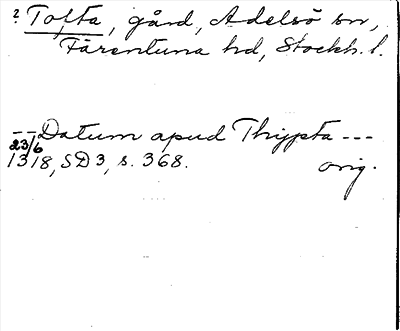 ? Tofta, gård, Adelsö sn,
Färentuna hd, Stockh. l.
-- Datum apud Thypta ---
23/6
1318, SD 3, s. 368. orig.